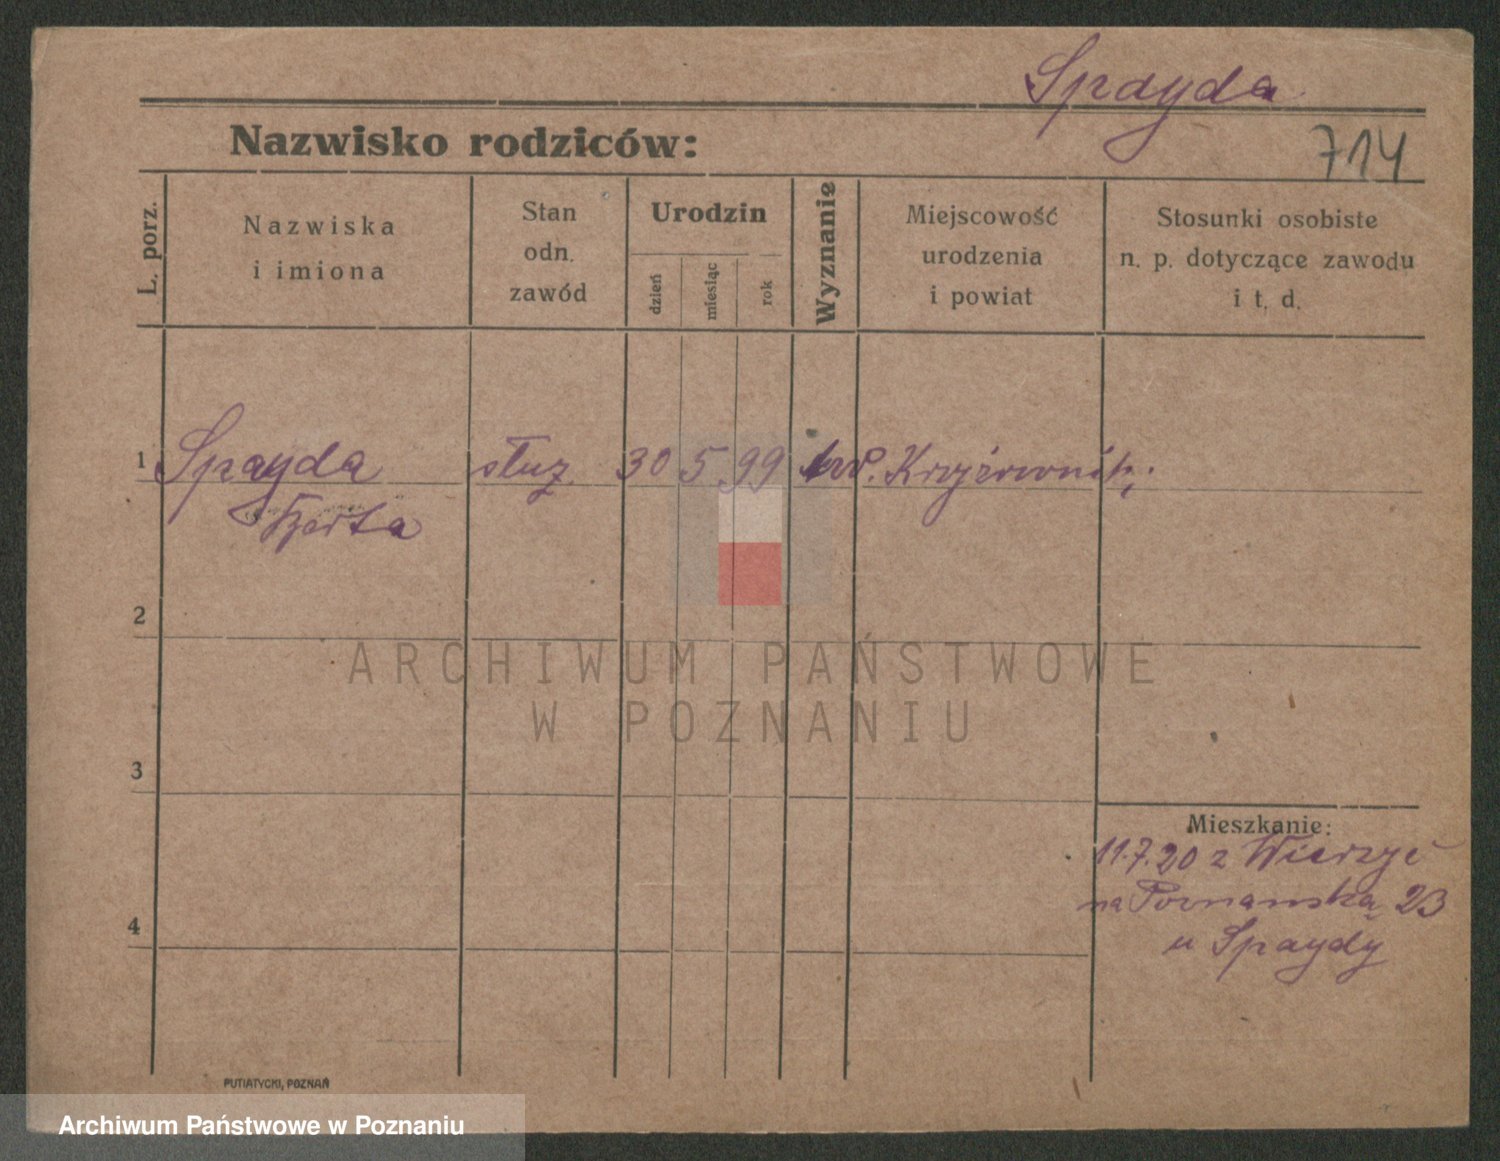 Sprayda
Nazwisko rodziców:
714
L. porz.
Nazwiska
i imiona
Stan
odn.
zawód
Urodzin
dzień
miesiąc
rok
Wyznanie
Miejscowość
urodzenia
i powiat
Stosunki osobiste
n. p. dotyczące zawodu
i t. d.
1
Sprayda
służ. 30 5 99
2
3
4
Mieszkanie:
11.7.20 z
na Poznańską 23
u Spraydy
ARCHIWUM PAŃSTWOWE
W POZNANIU
PUTIATYCKI, POZNAŃ
Archiwum Państwowe w Poznaniu